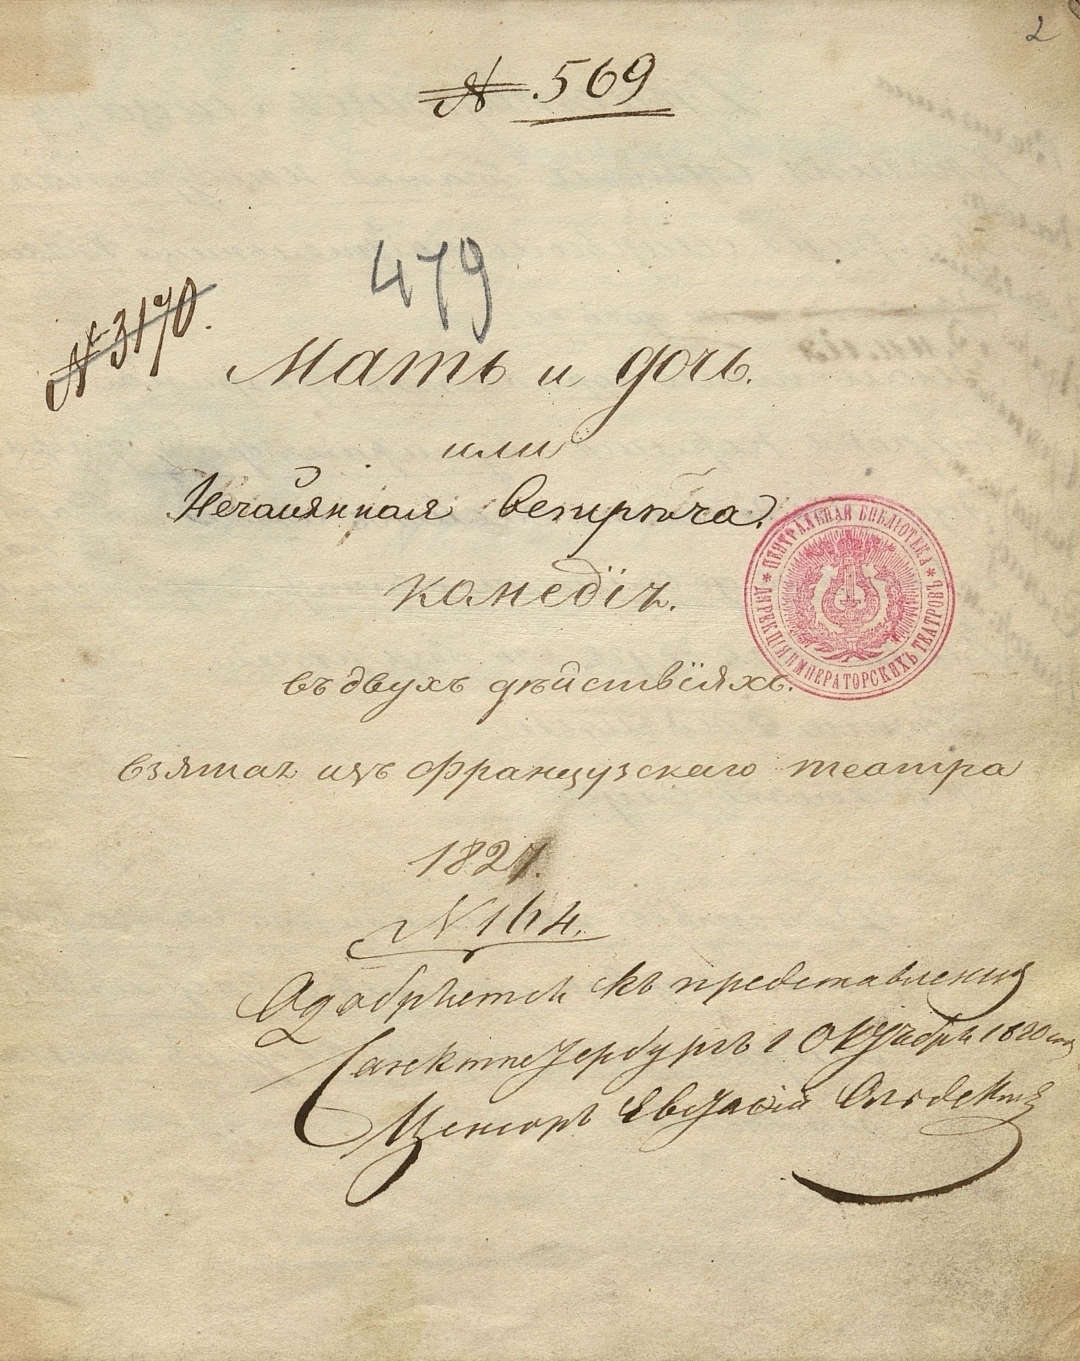 2
№. 569
479
№ 3170.
Мать и дочь.
или
Нечаянная встрѣча.
комедія.
въ двухъ дѣйствіяхъ.
взятая изъ французскаго театра
1827.
№ 164.
Одобряется къ представленію
Санктпетербургъ 1 Октября 1820 года
Цензоръ Евстафій Ольдекопъ
* ЦЕНТРАЛЬНАЯ БИБЛІОТЕКА * ДИРЕКЦІЯ ИМПЕРАТОРСКИХЪ ТЕАТРОВЪ